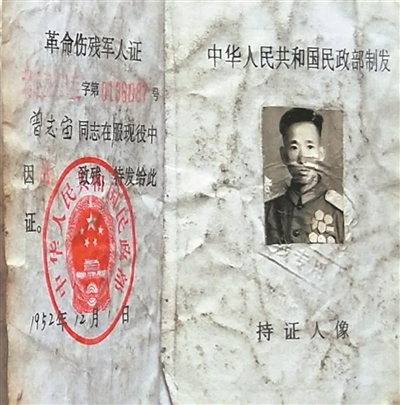 革命伤残军人证
字第0136087号
曾志宙同志在服现役中
因 致残,特发给此
证。
中华人民共和国民政部
1952年12月1日
中华人民共和国民政部制发
持证人像